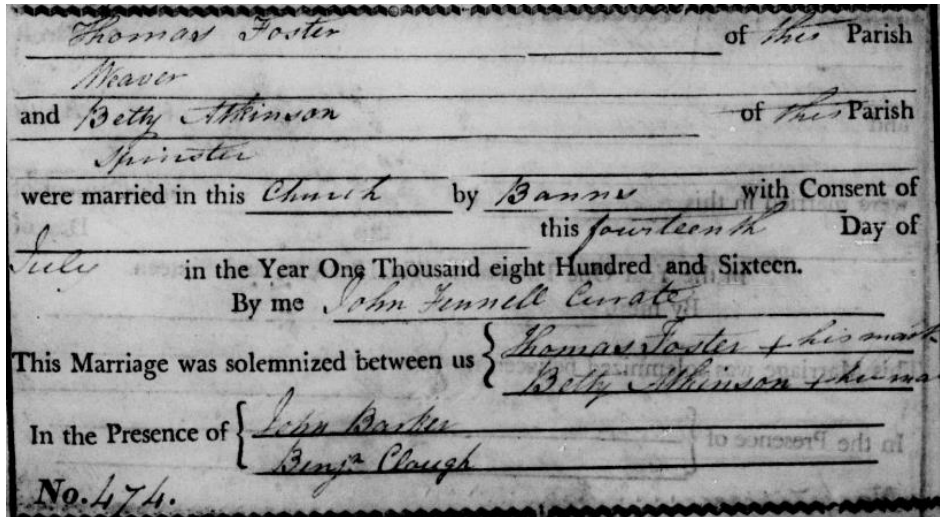 Thomas Foster of this Parish
Weaver
and Betty Atkinson of this Parish
Spinster
were married in this Church by Banns with Consent of
this fourteenth Day of
July in the Year One Thousand eight Hundred and Sixteen.
By me John Fennell Curate
This Marriage was solemnized between us { Thomas Foster + his mark
Betty Atkinson + her mar
In the Presence of { John Barker
Benjn Clough
No. 474.